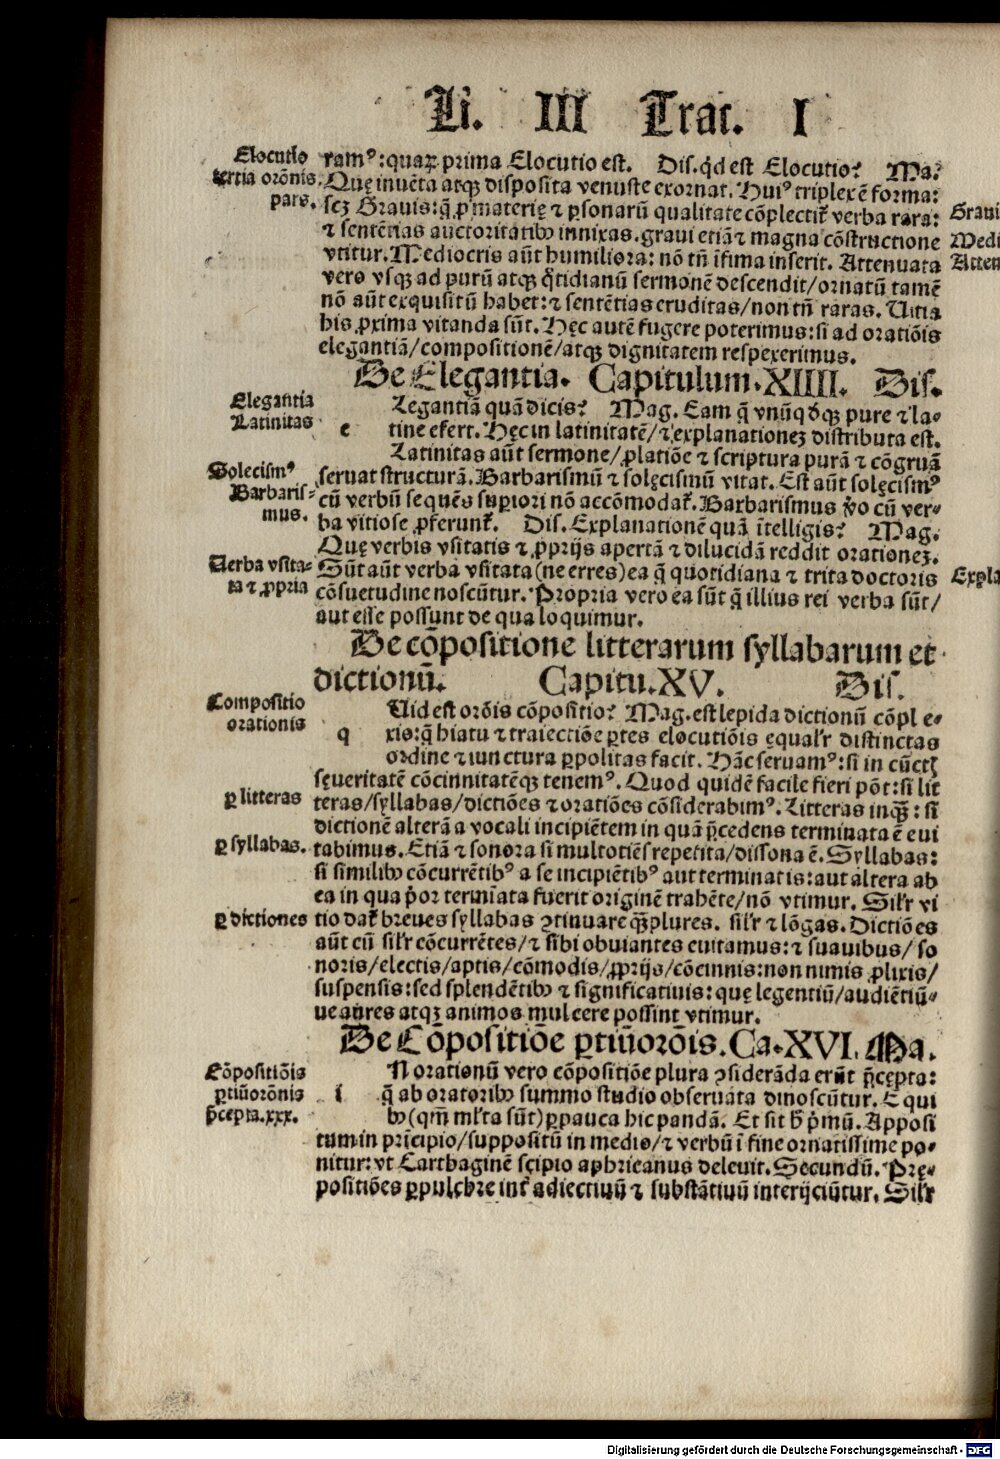 Li. III Trac. I
Elocutio
tertia orōnis
pars.
ramꝰ: quaꝝ prima Elocutio est. Dis. q̄d est Elocutio? Ma.
Quę inuēta atqꝫ disposita venuste exornat. Huiꝰ triplex ē forma:
sez Grauis: q̄ ꝓ materię ⁊ ꝑsonarū qualitate cōplectit̄ verba rara:
⁊ sententias auctoritatibꝰ innixas. graui etiā ⁊ magna cōstructione
vtitur. Mediocris aūt humiliora: nō tn̄ īfima inserit. Attenuata
vero vsqꝫ ad purū atqꝫ q̄tidianū sermonē descendit/ornatū tamē
nō aūt exquisitū habet: ⁊ sentētias eruditas/non tn̄ raras. Uitia
his ꝓxima vitanda sūt. Hęc autē fugere poterimus: si ad oratiōis
elegantiā/compositionē/atqꝫ dignitatem respexerimus.
De Elegantia. Capitulum. XIIII. Dis.
Elegantia
Latinitas
e Legantiā quā dicis? Mag. Eam q̄ vnūq̇dqꝫ pure ⁊ la-
tine efert. Hęc in latinitatē/⁊ explanationeꝫ distributa est.
Latinitas aūt sermone/ꝓlatiōe ⁊ scriptura purā ⁊ cōgruā
Solecismꝰ
Barbaris-
mus.
seruat structurā. Barbarismū ⁊ solęcismū vitat. Est aūt solęcismꝰ
cū verbū sequēs supiori nō accōmodat̄. Barbarismus v̄o cū ver-
ba vitiose ꝓferunt̄. Dis. Explanationē quā ītelligis? Mag.
Quę verbis vsitatis ⁊ ꝓprijs apertā ⁊ dilucidā reddit orationeꝫ.
Uerba vsita-
ta ⁊ ꝓpria
Sūt aūt verba vsitata (ne erres) ea q̄ quotidiana ⁊ trita doctoris
cōsuetudine noscūtur. Propria vero ea sūt q̄ illius rei verba sūt/
aut esse possunt de qua loquimur.
De cōpositione litterarum syllabarum et
dictionū. Capitu. XV. Dis.
Compositio
orationis
q Uid est orōis cōpositio? Mag. est lepida dictionū cōple-
xis: q̄ hiatu ⁊ traiectiōe ꝑtes elocutiōis ęqualr̄ distinctas
ordine ⁊ iunctura ꝑpolitas facit. Hāc seruamꝰ: si in cūctꝭ
sęueritatē cōcinnitatēqꝫ tenemꝰ. Quod quidē facile fieri pōt: si lit
ꝑ litteras
teras/syllabas/dictiōes ⁊ oratiōes cōsiderabimꝰ. Litteras inqꝫ̄: si
dictionē alterā a vocali incipiētem in quā p̄cedens terminata ē eui
ꝑ syllabas.
tabimus. Etiā ⁊ sonora si multotiēs repetita/dissona ē. Syllabas:
si similibꝰ cōcurrētibꝰ a se incipiētibꝰ aut terminatis: aut altera ab
ea in qua p̓or termīata fuerit originē trahēte/nō vtimur. Silr̄ vi
ꝑ dictiones
tio dat̄ breues syllabas ꝯtinuare qꝫ̄plures. silr̄ ⁊ lōgas. Dictiōes
aūt cū silr̄ cōcurrētes/⁊ sibi obuiantes euitamus: ⁊ suauibus/so
noris/electis/aptis/cōmodis/ꝓprijs/cōcinnis: non nimis ꝓlixis/
suspensis: sed splendētibꝰ ⁊ significatiuis: quę legentiū/audiētiū-
ue aures atqꝫ animos mulcere possint vtimur.
De Cōpositiōe ꝑtiū orōis. Ca. XVI. Ma.
Cōpositiōis
ꝑtiū orōnis
p̄cepta. xxx.
i N orationū vero cōpositiōe plura ꝯsiderāda erūt p̄cępta:
q̄ ab oratoribꝰ summo studio obseruata dinoscūtur. E qui
bꝰ (qm̄ ml̄ta sūt) ꝑpauca hic pandā. Et sit h̄ p̓mū. Apposi
tum in prīcipio/suppositū in medio/⁊ verbū ī fine ornatissime po-
nitur: vt Carthaginē scipio aphricanus deleuit. Secundū. Prę-
positiōes ꝑpulchre int̄ adiectiuū ⁊ substātiuū interijciūtur. Silr̄
Digitalisierung gefördert durch die Deutsche Forschungsgemeinschaft - DFG